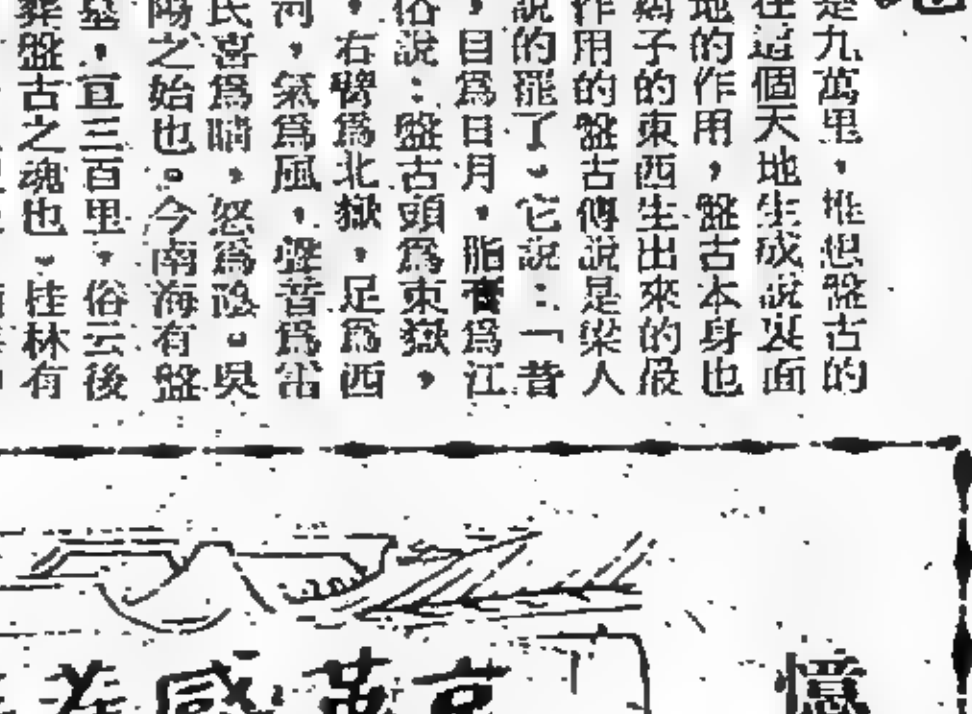 是九萬里，推想盤古的
在這個天地生成說裏面
地的作用，盤古本身也
子的東西生出來的最
作用的盤古傳說是梁人
說的罷了。它說：「昔
，目為日月，脂膏為江
俗說：盤古頭為東嶽，
，右臂為北嶽，足為西
河，氣為風，聲音為雷
氏喜為晴，怒為陰。吳
陽之始也。今南海有盤
墓，亘三百里，俗云後
葬盤古之魂也。桂林有
憶